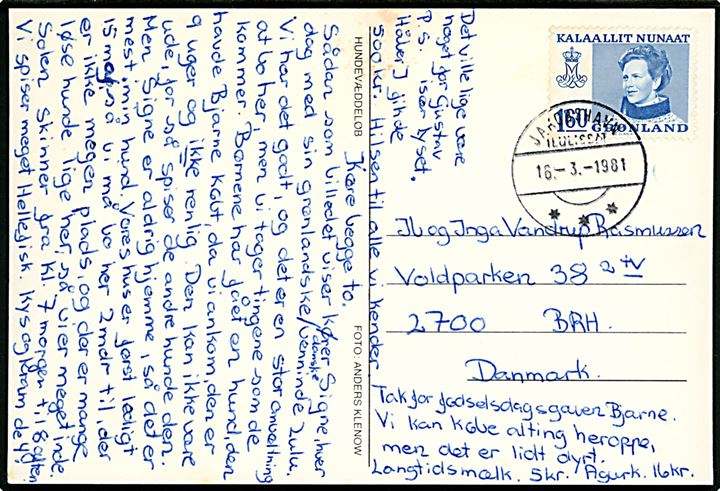 HUNDEVÆDDELØB
FOTO: ANDERS KLENOW
Kære begge to.
Sådan som billedet viser kører Signe, hver
dag med sin grønlandske/danske veninde Zulu.
Vi har det godt, og det er en stor omvæltning
at bo her, men vi tager tingene som de
kommer. Børnene har fået en hund, den
havde Bjarne købt, da vi ankom, den er
9 uger og ikke renlig. Den kan ikke være
ude, for så spiser de andre hunde den.
Men Signe er aldrig hjemme, så det er
mest min hund. Vores hus er først ledigt
15 maj, så vi må bo her 2 mdr til, der
er ikke megen plads, og der er mange
løse hunde lige her, så vi er meget inde.
Solen skinner fra kl. 7 morgen til 8 aften.
Vi spiser meget Hellefisk. Kys og kram
Det ville lige være
noget for Gustav
især lyset.
P.S.
Håber I fik de
500 kr. Hilsen til alle vi kender
KALAALLIT NUNAAT
160 GRØNLAND
JAKOBSHAVN
ILULISSAT
16.-3.-1981
Ib og Inga Vandrup Rasmussen
Voldparken 38 2 tv
2700 BRH.
Danmark.
Tak for fødselsdagsgaven Bjarne.
Vi kan købe alting heroppe,
men det er lidt dyrt.
Langtidsmælk. 5kr. Agurk. 16kr.